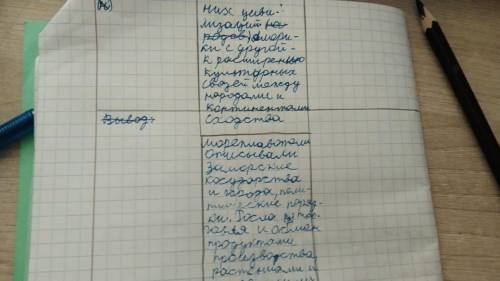 них циви-
лизаций на-
родов) Амери-
ки с другой -
к расширению
культурных
связей между
народами и
континентами
Вывод:
сходства
мореплаватели
описывали
заморские
государства
и города, поли-
тические поряд-
ки. Росла и тор-
говля и обмен
продуктами
производства,
растениями и